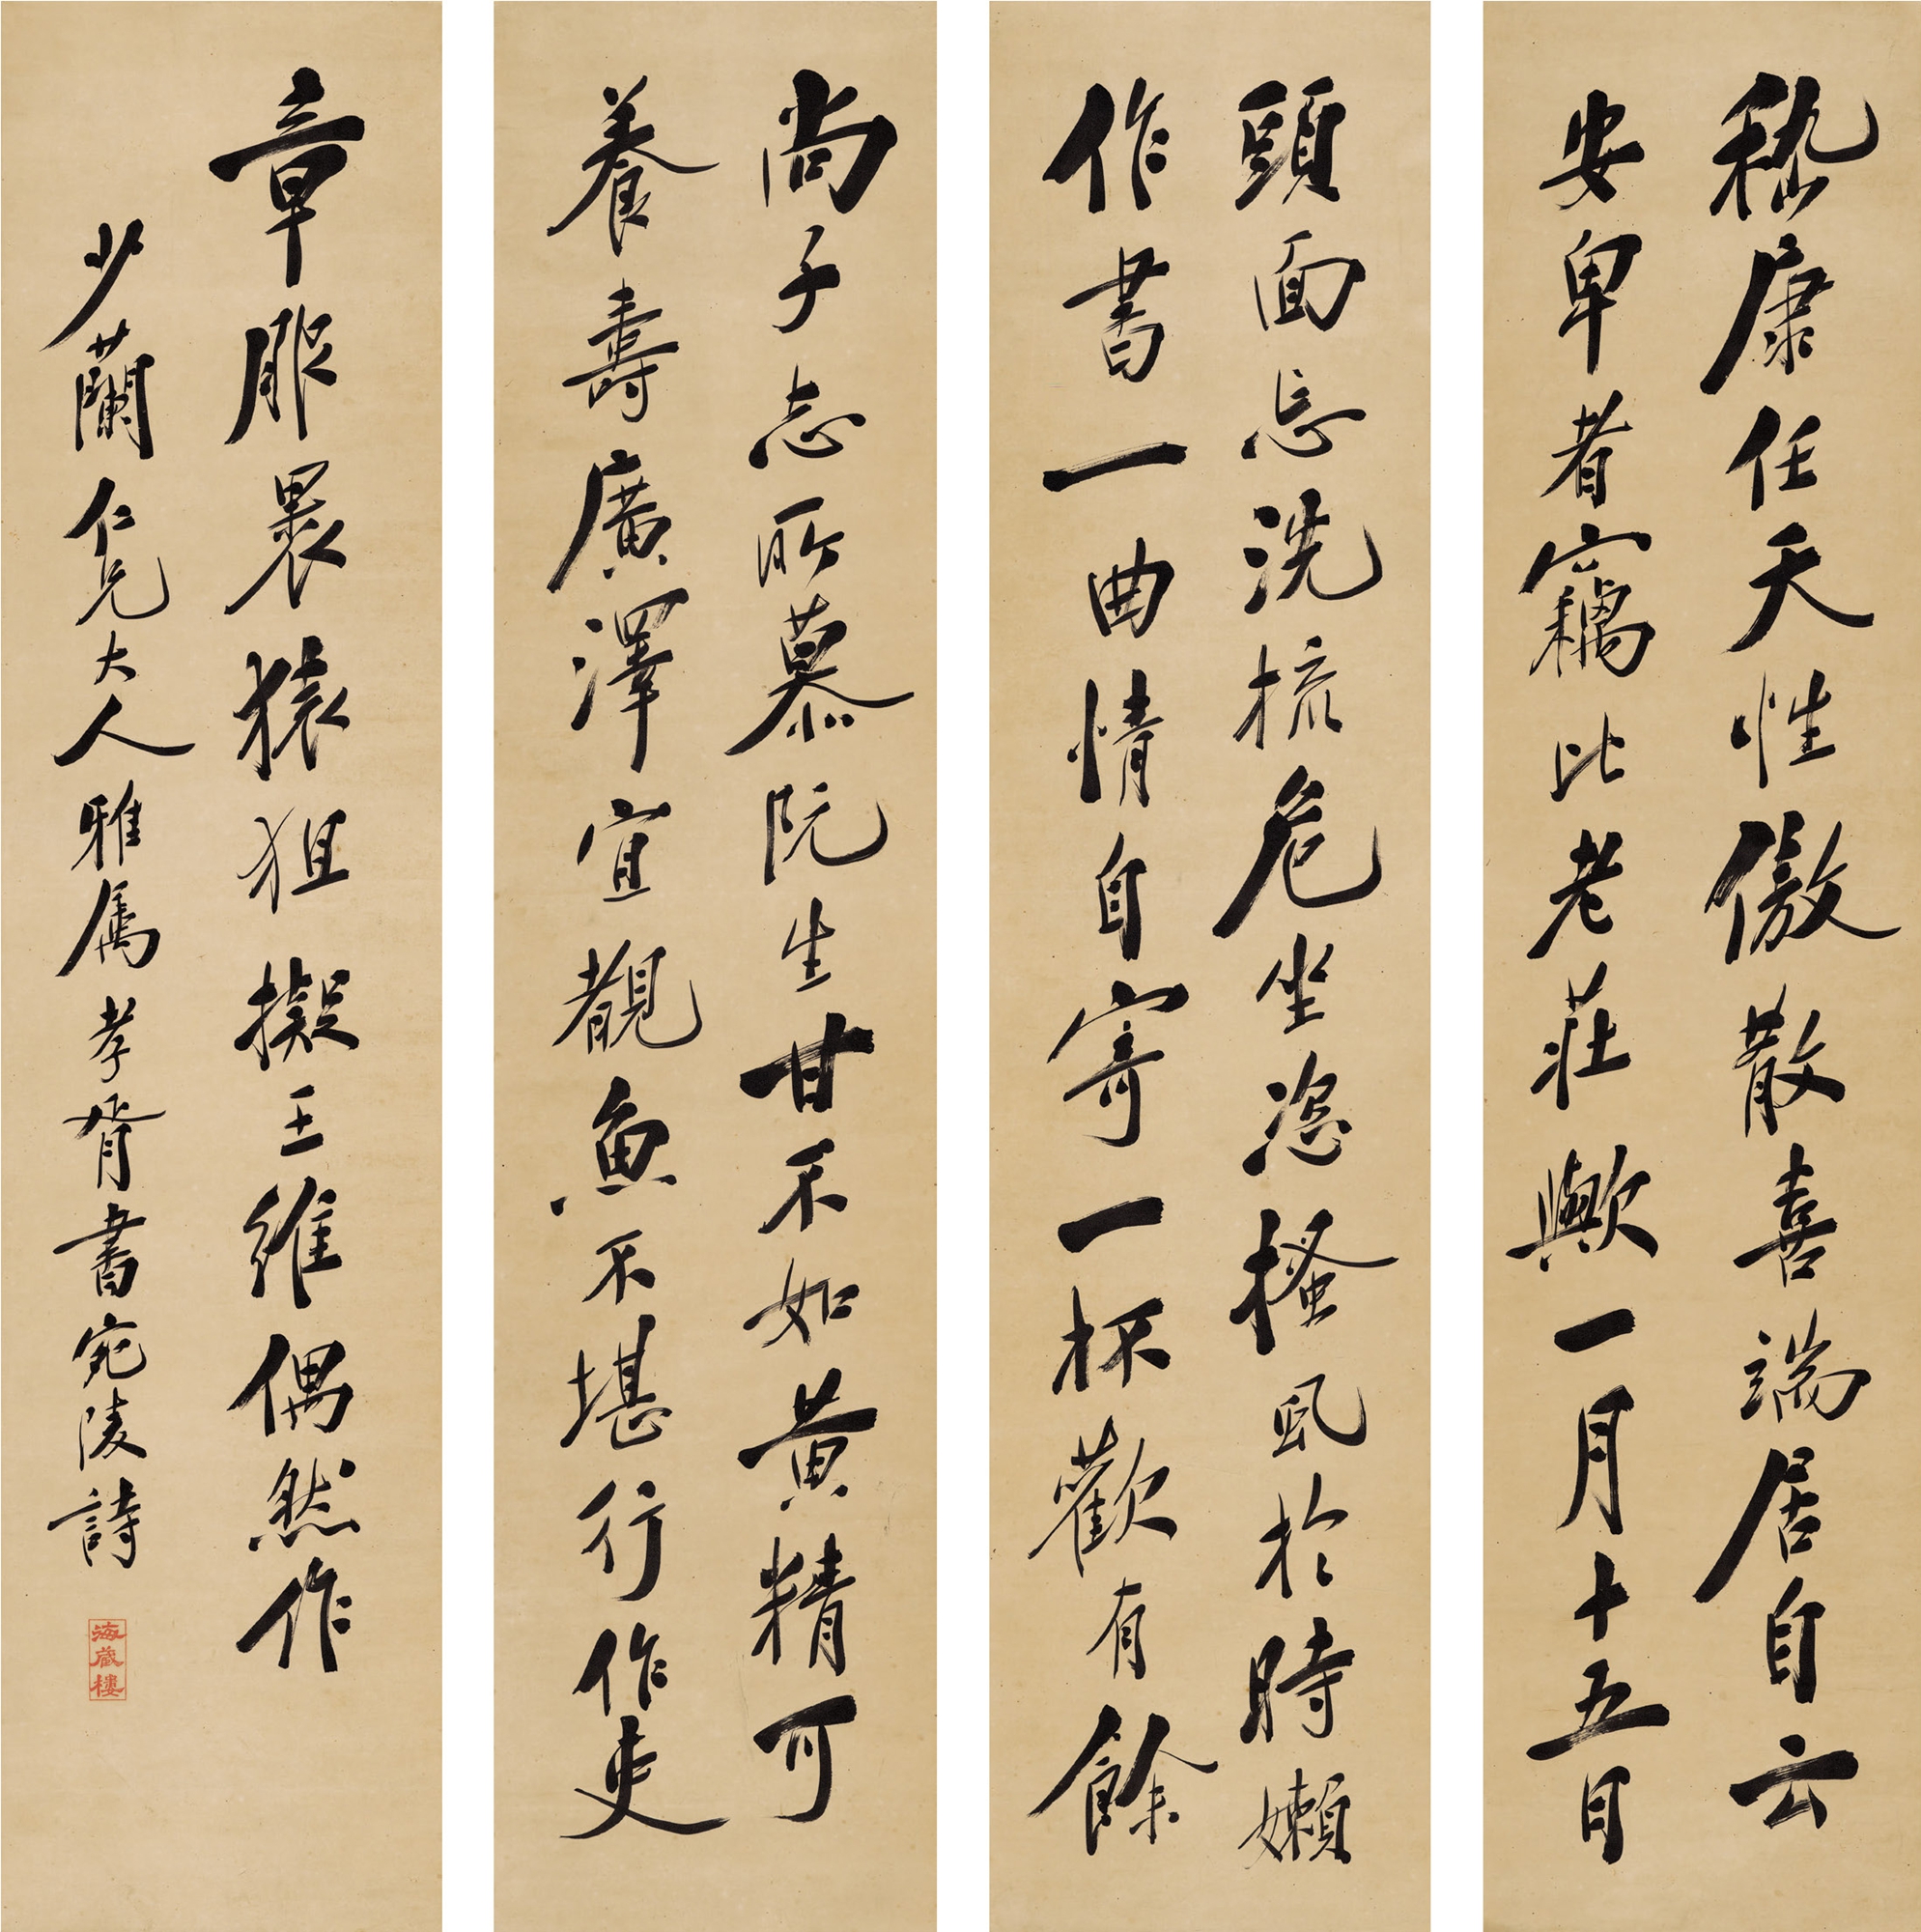 嵇康任天性傲散喜端居自云
安卑者竊比老莊歟一月十五日
頭面忘洗梳危坐恣搔虱於時嬾
作書一曲情自寄一杯歡有餘
尚子志所慕阮生甘不如黃精可
養壽廣澤宜觀魚不堪行作吏
章服裹猿狙擬王維偶然作
少蘭仁兄大人雅屬孝胥書宛陵詩
海藏樓